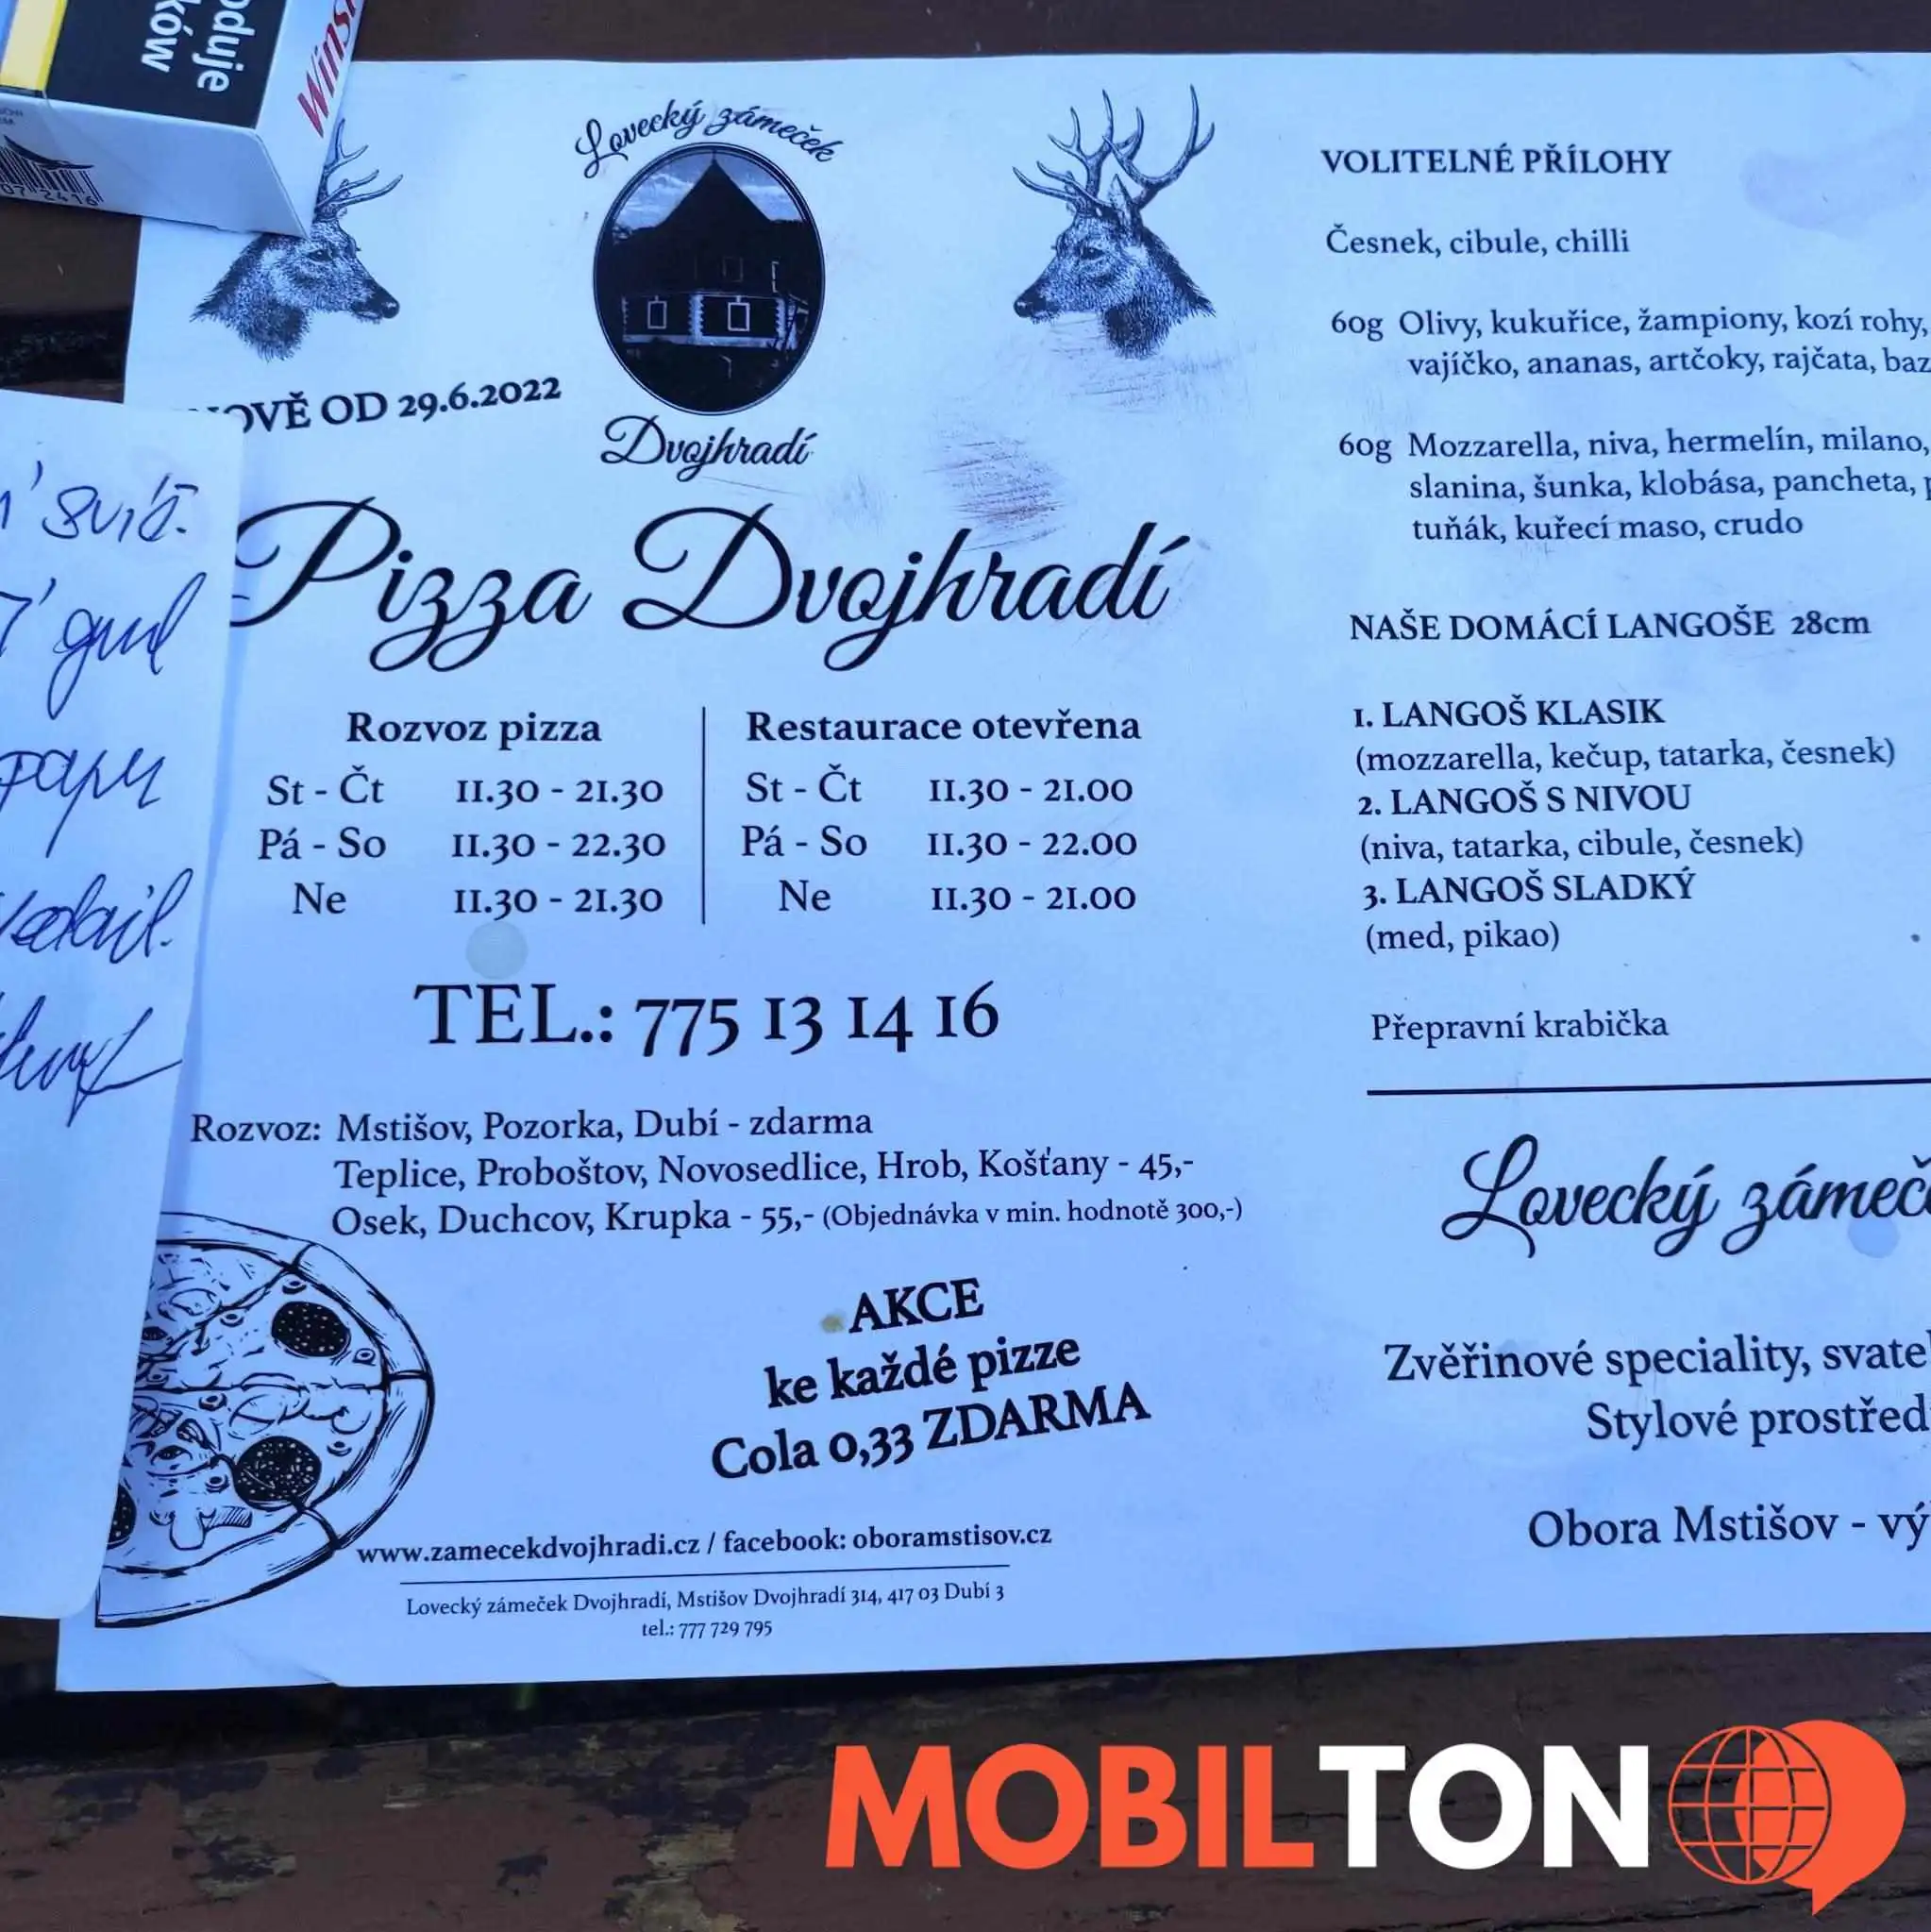 oduje
ków
Wins
07 2416
Lovecký zámeček
Dvojhradí
OVĚ OD 29.6.2022
Pizza Dvojhradí
Rozvoz pizza
St - Čt 11.30 - 21.30
Pá - So 11.30 - 22.30
Ne 11.30 - 21.30
Restaurace otevřena
St - Čt 11.30 - 21.00
Pá - So 11.30 - 22.00
Ne 11.30 - 21.00
TEL.: 775 13 14 16
Rozvoz: Mstišov, Pozorka, Dubí - zdarma
Teplice, Proboštov, Novosedlice, Hrob, Košťany - 45,-
Osek, Duchcov, Krupka - 55,- (Objednávka v min. hodnotě 300,-)
AKCE
ke každé pizze
Cola 0,33 ZDARMA
www.zamecekdvojhradi.cz / facebook: oboramstisov.cz
Lovecký zámeček Dvojhradí, Mstišov Dvojhradí 314, 417 03 Dubí 3
tel.: 777 729 795
VOLITELNÉ PŘÍLOHY
Česnek, cibule, chilli
60g Olivy, kukuřice, žampiony, kozí rohy,
vajíčko, ananas, artčoky, rajčata, baz
60g Mozzarella, niva, hermelín, milano,
slanina, šunka, klobása, pancheta,
tuňák, kuřecí maso, crudo
NAŠE DOMÁCÍ LANGOŠE 28cm
1. LANGOŠ KLASIK
(mozzarella, kečup, tatarka, česnek)
2. LANGOŠ S NIVOU
(niva, tatarka, cibule, česnek)
3. LANGOŠ SLADKÝ
(med, pikao)
Přepravní krabička
Lovecký zámeč
Zvěřinové speciality, svate
Stylové prostřed
Obora Mstišov - vý
MOBILTON